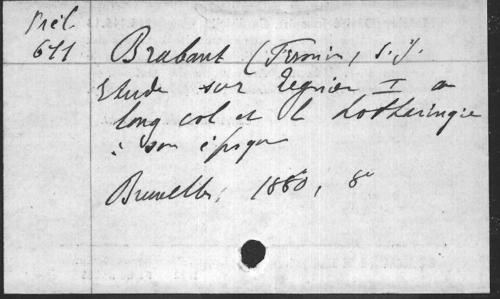 Préc
611
Brabant (Firmin, S.J.
Etude sur Regnier I au
long col et la Lotharingie
à son époque
Bruxelles, 1880, 8°